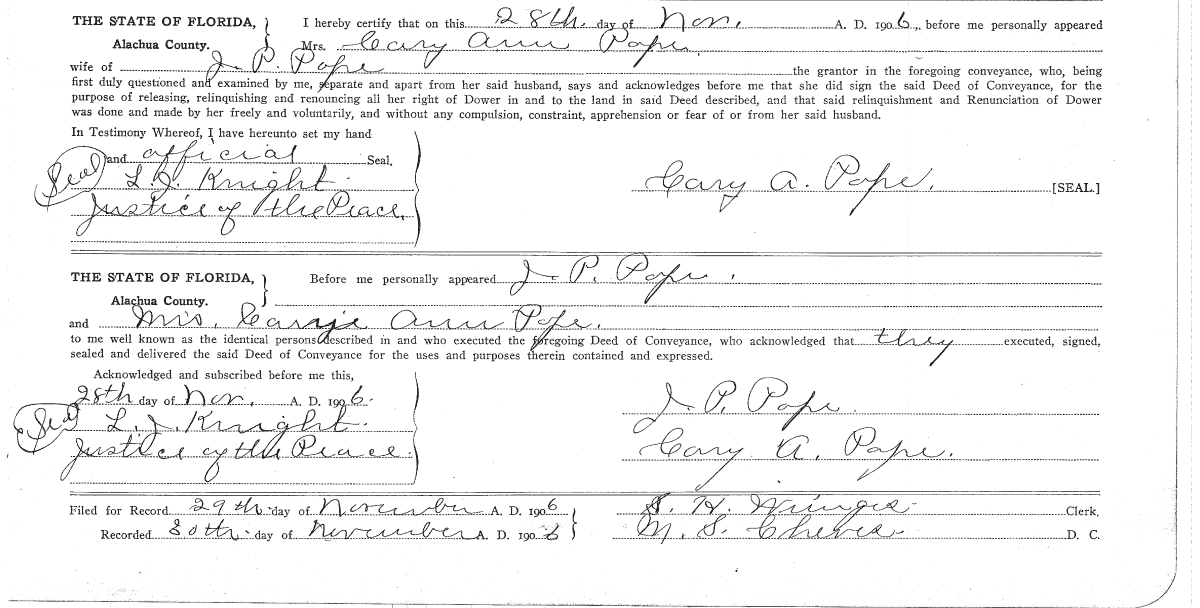 THE STATE OF FLORIDA, I hereby certify that on this 28th. day of Nov. A. D. 1906., before me personally appeared
Alachua County. Mrs. Cary Ann Pope.
wife of J. P. Pope the grantor in the foregoing conveyance, who, being
first duly questioned and examined by me, separate and apart from her said husband, says and acknowledges before me that she did sign the said Deed of Conveyance, for the
purpose of releasing, relinquishing and renouncing all her right of Dower in and to the land in said Deed described, and that said relinquishment and Renunciation of Dower
was done and made by her freely and voluntarily, and without any compulsion, constraint, apprehension or fear of or from her said husband.
In Testimony Whereof, I have hereunto set my hand
and official Seal.
Seal L. J. Knight. Cary A. Pope. [SEAL.]
Justice of the Peace.
THE STATE OF FLORIDA, Before me personally appeared J. P. Pope.
Alachua County.
and Mrs. Carrie Ann Pope.
to me well known as the identical persons described in and who executed the foregoing Deed of Conveyance, who acknowledged that they executed, signed,
sealed and delivered the said Deed of Conveyance for the uses and purposes therein contained and expressed.
Acknowledged and subscribed before me this,
28th day of Nov. A. D. 1906. J. P. Pope
Seal L. J. Knight.
Justice of the Peace. Cary A. Pope.
Filed for Record 29th. day of November A. D. 1906 S. H. Wienges Clerk.
Recorded 30th. day of November A. D. 1906 M. S. Cheves D. C.